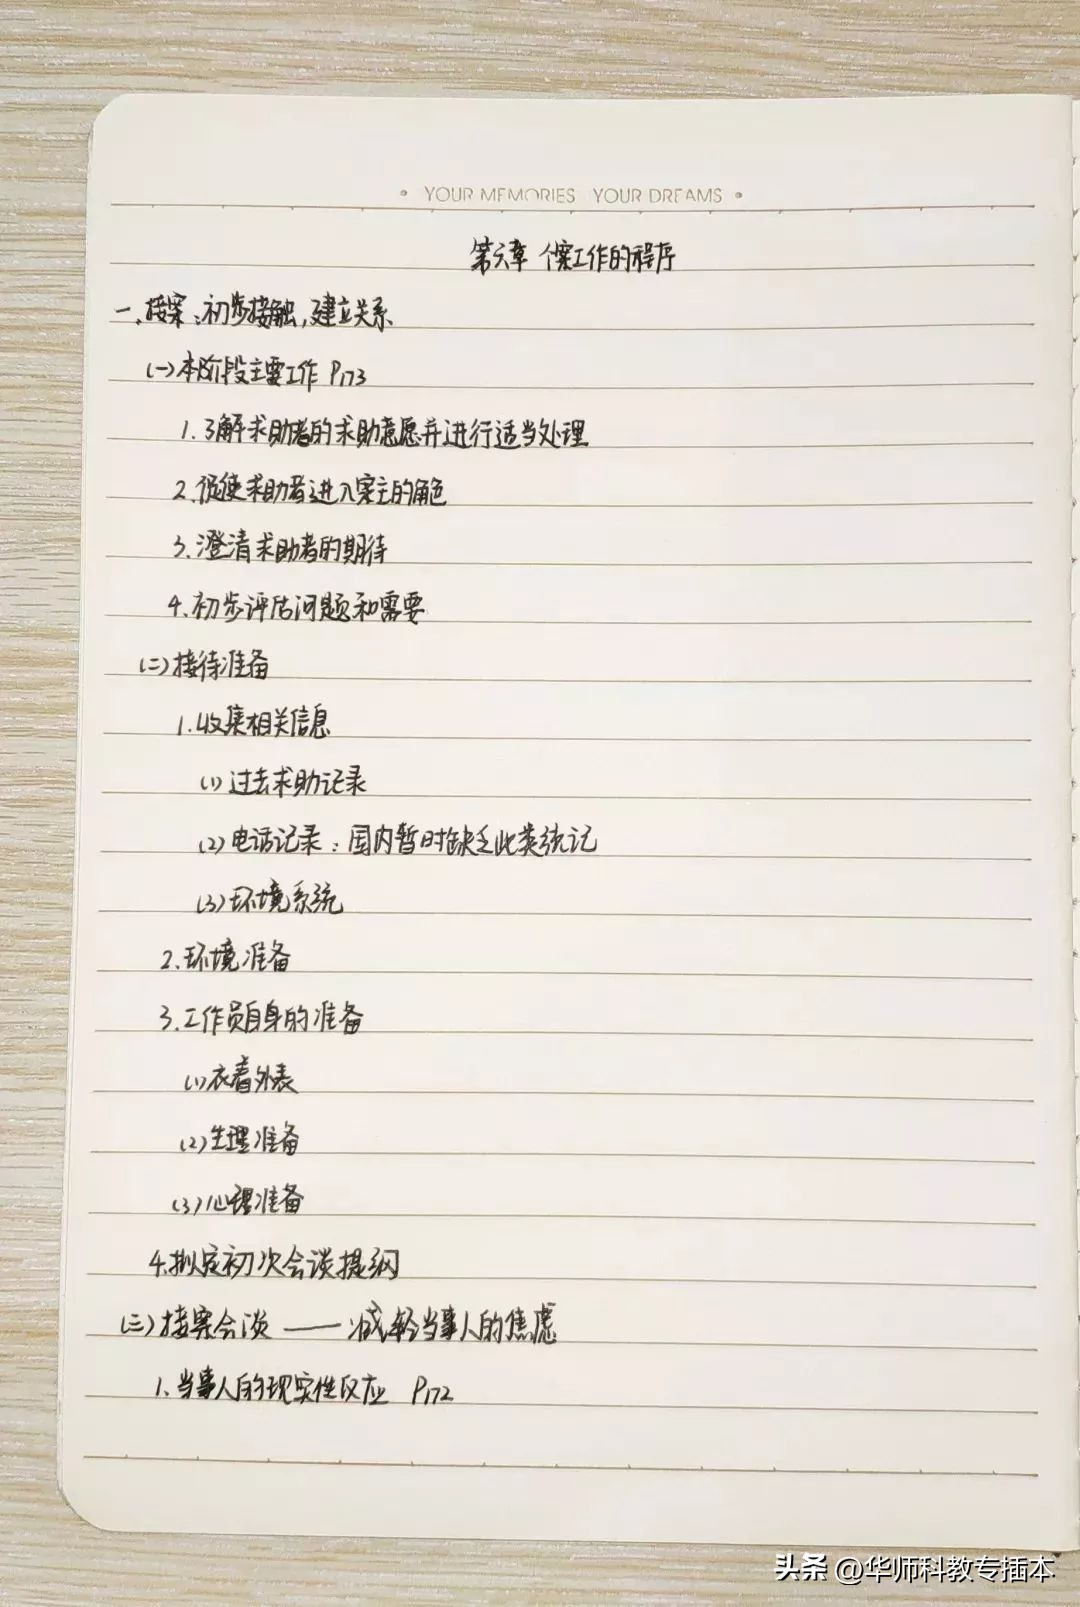 • YOUR MEMORIES YOUR DREAMS •
第六章 个案工作的程序
一、接案：初步接触，建立关系
(一)本阶段主要工作 P173
1.了解求助者的求助意愿并进行适当处理
2.促使求助者进入案主的角色
3.澄清求助者的期待
4.初步评估问题和需要
(二)接待准备
1.收集相关信息
(1)过去求助记录
(2)电话记录：国内暂时缺乏此类统记
(3)环境系统
2.环境准备
3.工作员自身的准备
(1)衣着外表
(2)生理准备
(3)心理准备
4.拟定初次会谈提纲
(三)接案会谈——减轻当事人的焦虑
1.当事人的现实性反应 P172
头条 @华师科教专插本